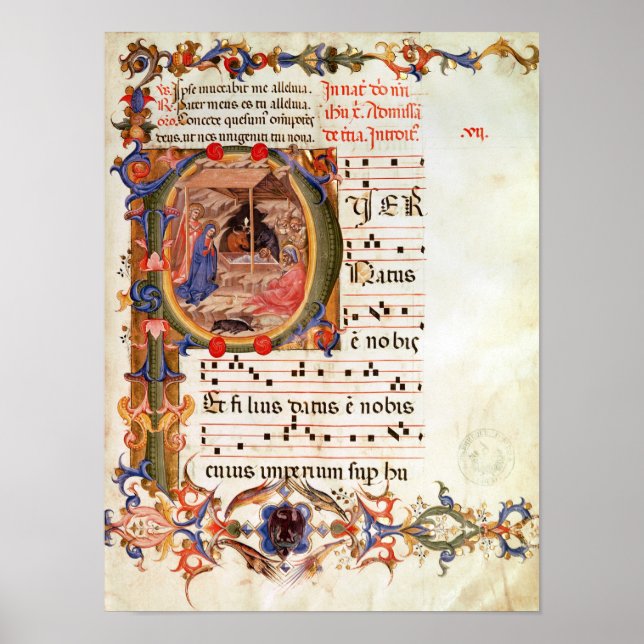 V℣. Ipse invocabit me alleluia.
Pater meus es tu alleluia.
Concede quesum̄ om̄ipotēs
deus. ut nos unigeniti tui nova.
In nat̄ do nr̄i
ihu x̄. Ad missā
de t̄cia. Introit̄.
.VII.
PUER
Natus
ē nobis
Et filius datus ē nobis
cuius imperium sup̄ hu